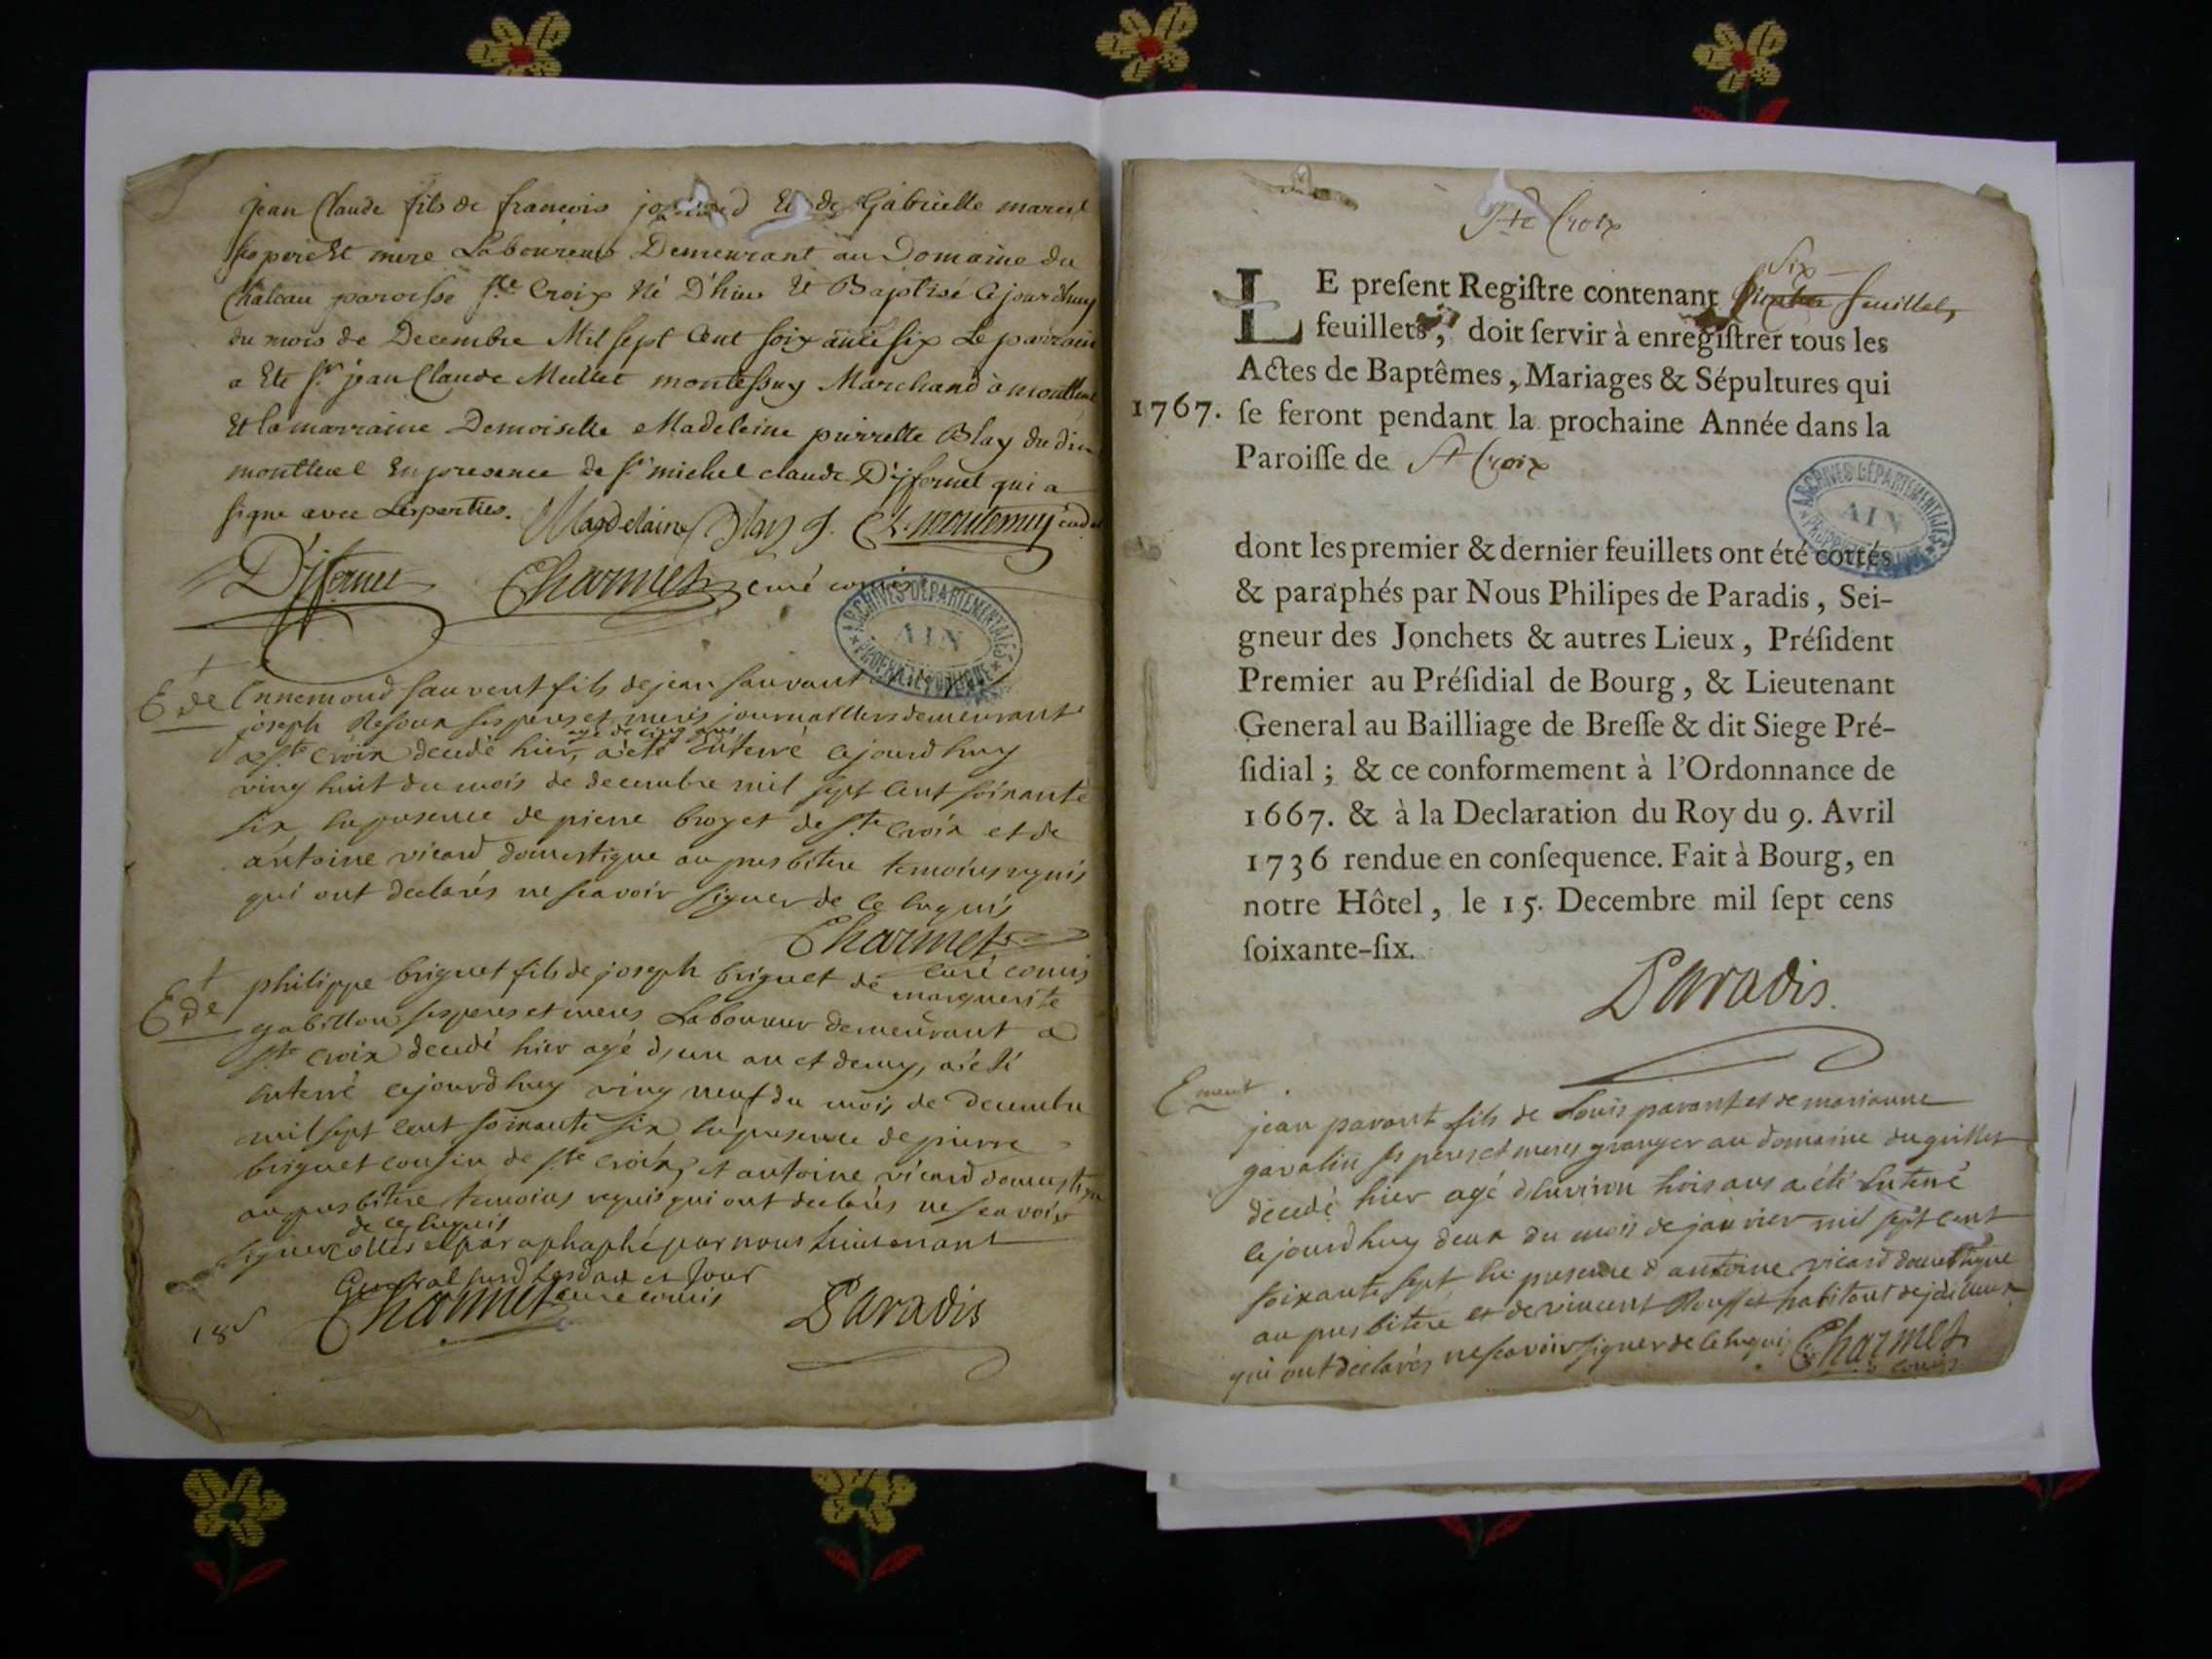 jean Claude fils de francois joyard Et de Gabrielle marcel
ses pere Et mere Laboureurs Demeurant au Domaine du
Château paroisse Ste Croix Né D'hier Et Baptisé Cejourdhuy
du mois de Decembre Mil sept Cent soixante six Le parrain
a Eté Sr jean Claude Mullet montessuy Marchand à montluel
Et la marraine Demoiselle Madeleine pierrette Blay du dit
montluel En presence de Sr michel claude D'yfernet qui a
signe avec Les parties. Magdelaine Blay J. Cl. montessuy
D'yfernet Charmet curé comis
ARCHIVES DÉPARTEMENTALES
AIN
PROPRIÉTÉ PUBLIQUE
Ennemond sauvent fils de jean sauvant
joseph ses peres et meres journalliers demeurants
agé de cinq ans
a Ste Croix decedé hier, a été Enterré cejourdhuy
ving huit du mois de decembre mil sept Cent soixante
six En presence de pierre broyet de Ste Croix et de
antoine vicard domestique au presbitere temoins requis
qui ont declarés ne scavoir signer de ce Enquis
Charmet
curé comis
philippe briguet fils de joseph briguet de marguerite
gabillon ses peres et meres Laboureur demeurant a
Ste Croix decedé hier agé d'un an et demy, a été
Enterré cejourdhuy ving neuf du mois de Decembre
mil sept Cent soixante six, En presence de pierre
briguet cousin de Ste Croix, et antoine vicard domestique
au presbitere temoins requis qui ont declarés ne scavoir
de ce Enquis
signer cottés et paraphaphé par nous Lieutenant
General susd Lesdax et Jour
Charmet curé comis Paradis
Ste Croix
six
LE preſent Regiſtre contenant feuillets
feuillets, doit ſervir à enregiſtrer tous les
Actes de Baptêmes, Mariages & Sépultures qui
1767. ſe feront pendant la prochaine Année dans la
Paroiſſe de St Croix
ARCHIVES DÉPARTEMENTALES
AIN
dont les premier & dernier feuillets ont été cottés
& paraphés par Nous Philipes de Paradis, Sei-
gneur des Jonchets & autres Lieux, Préſident
Premier au Préſidial de Bourg, & Lieutenant
General au Bailliage de Breſſe & dit Siege Pré-
ſidial ; & ce conformement à l'Ordonnance de
1667. & à la Declaration du Roy du 9. Avril
1736 rendue en conſequence. Fait à Bourg, en
notre Hôtel, le 15. Decembre mil ſept cens
ſoixante-ſix.
Paradis.
Ement
jean parant fils de Louis parant et de marianne
gavalin ses peres et meres granger au domaine du grillet
decedé hier agé d'Environ trois ans a été Enterré
cejourdhuy deux du mois de janvier mil sept cent
soixante sept En presence d'antoine vicard domestique
au presbitere et de vincent habitant de
qui ont declarés ne scavoir signer de ce Enquis Charmet
c. comis